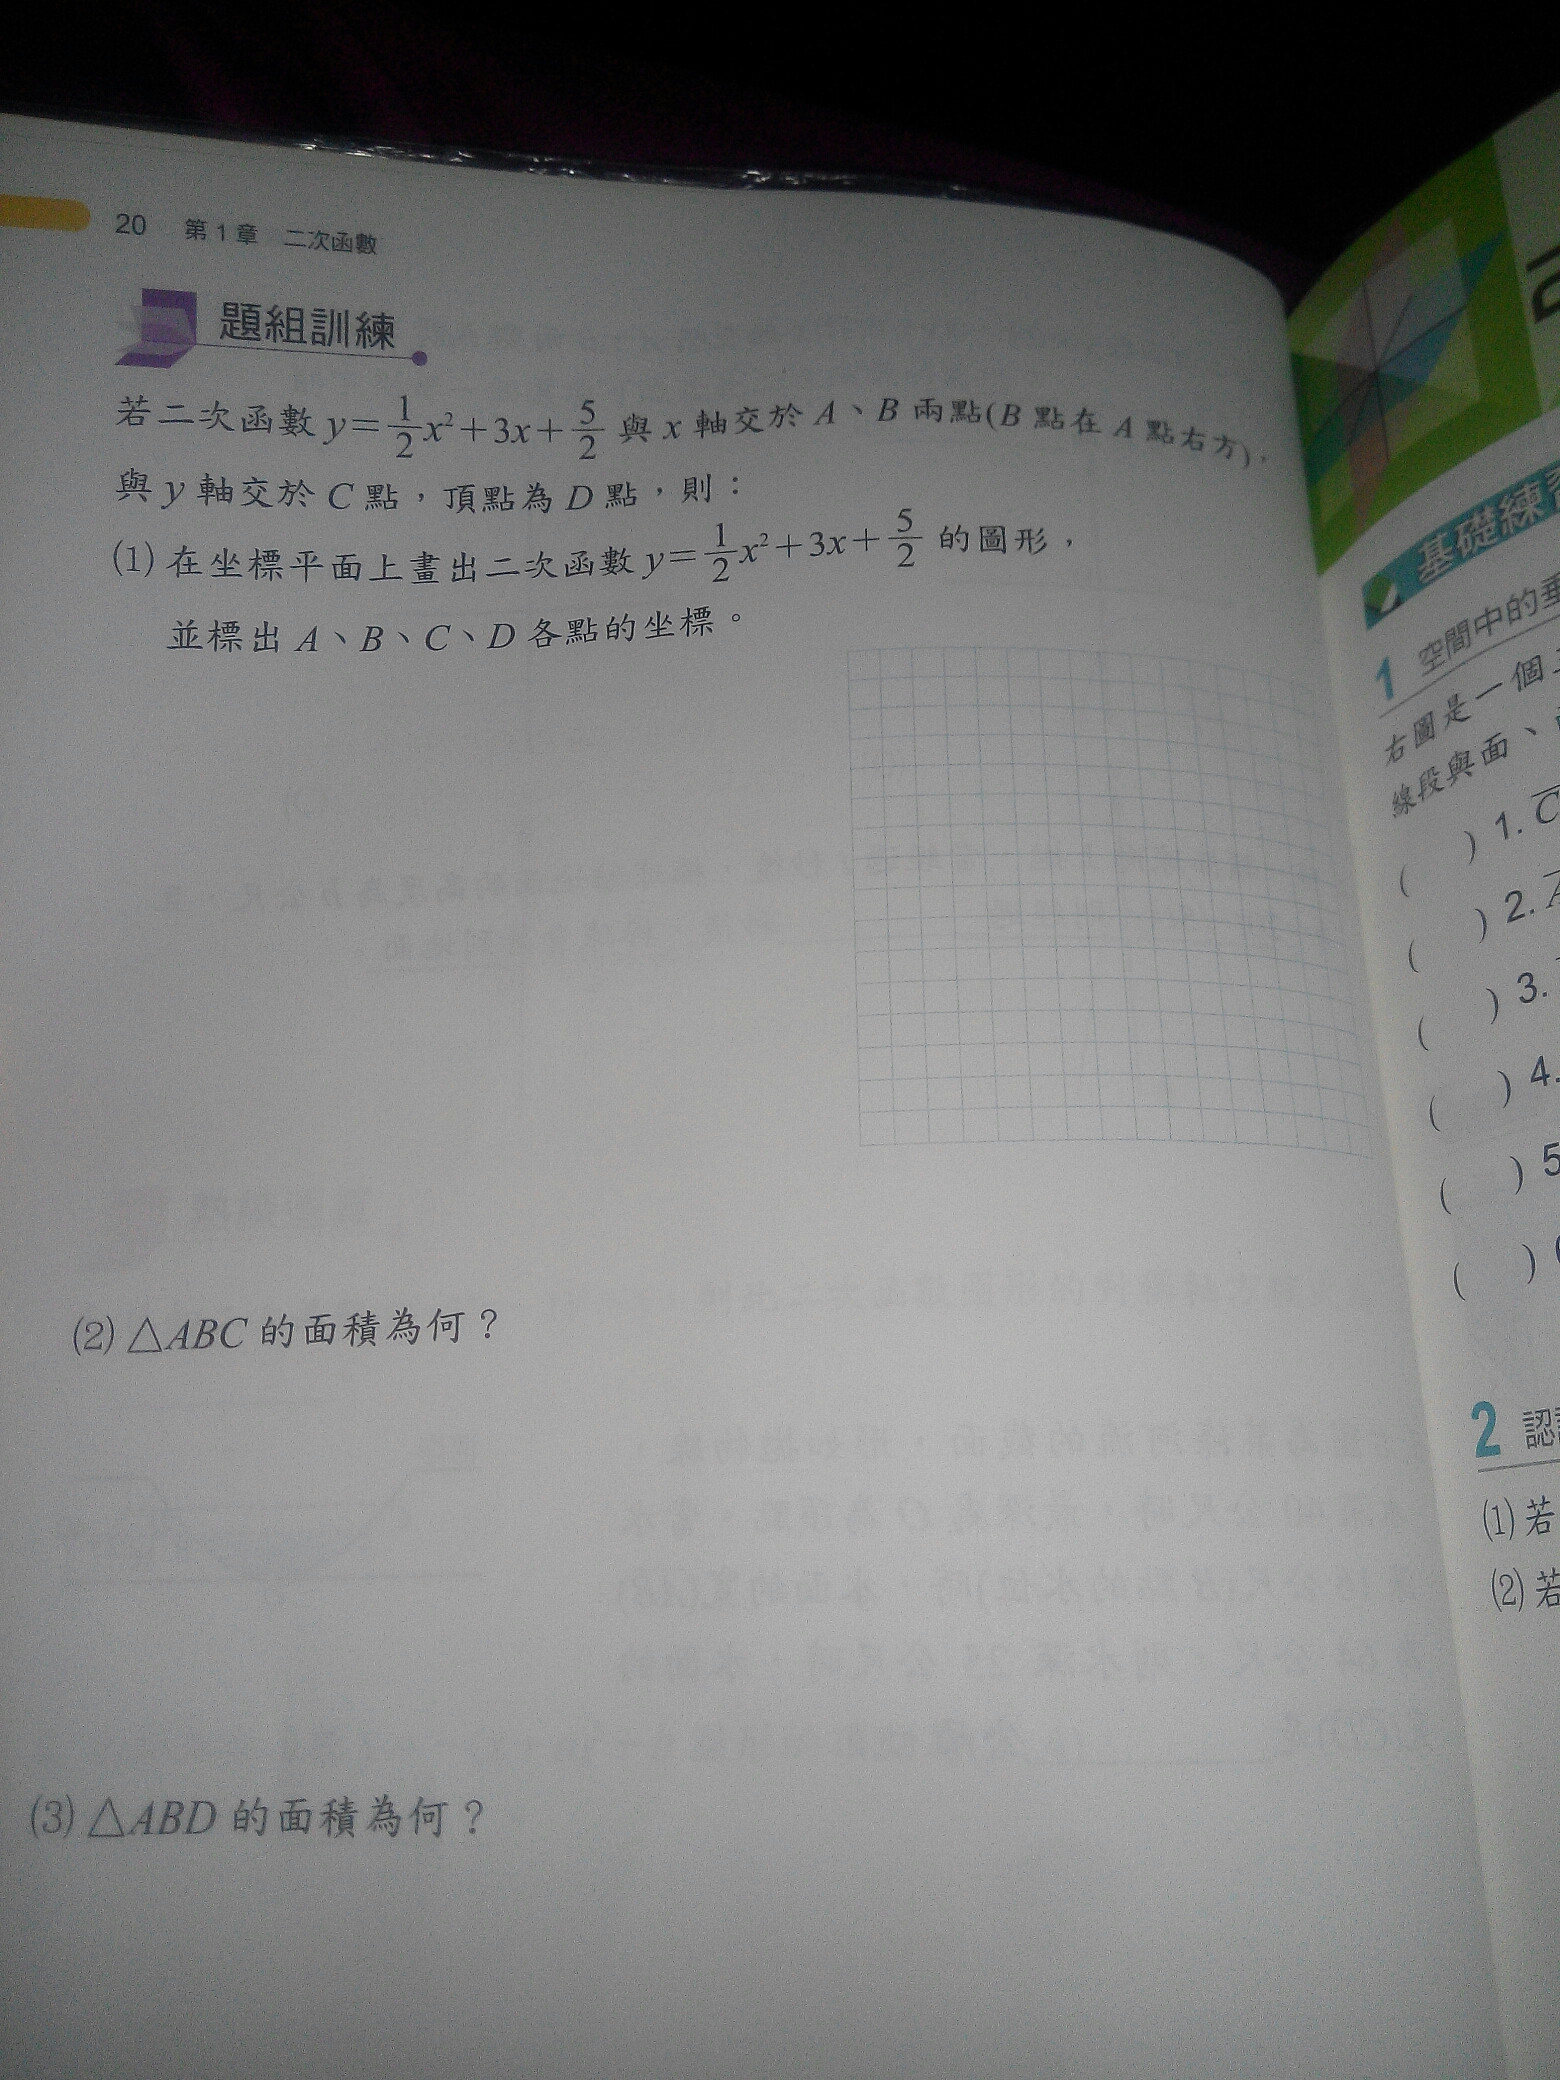 20 第1章 二次函數
題組訓練
若二次函數 y=1/2x²+3x+5/2 與 x 軸交於 A、B 兩點(B 點在 A 點右方),
與 y 軸交於 C 點,頂點為 D 點,則:
(1) 在坐標平面上畫出二次函數 y=1/2x²+3x+5/2 的圖形,
並標出 A、B、C、D 各點的坐標。
(2) △ABC 的面積為何?
(3) △ABD 的面積為何?
基礎練習
1 空間中的垂
右圖是一個
線段與面、
( ) 1. C
( ) 2.
( ) 3.
( ) 4.
( ) 5
( )
2 認
(1) 若
(2) 若